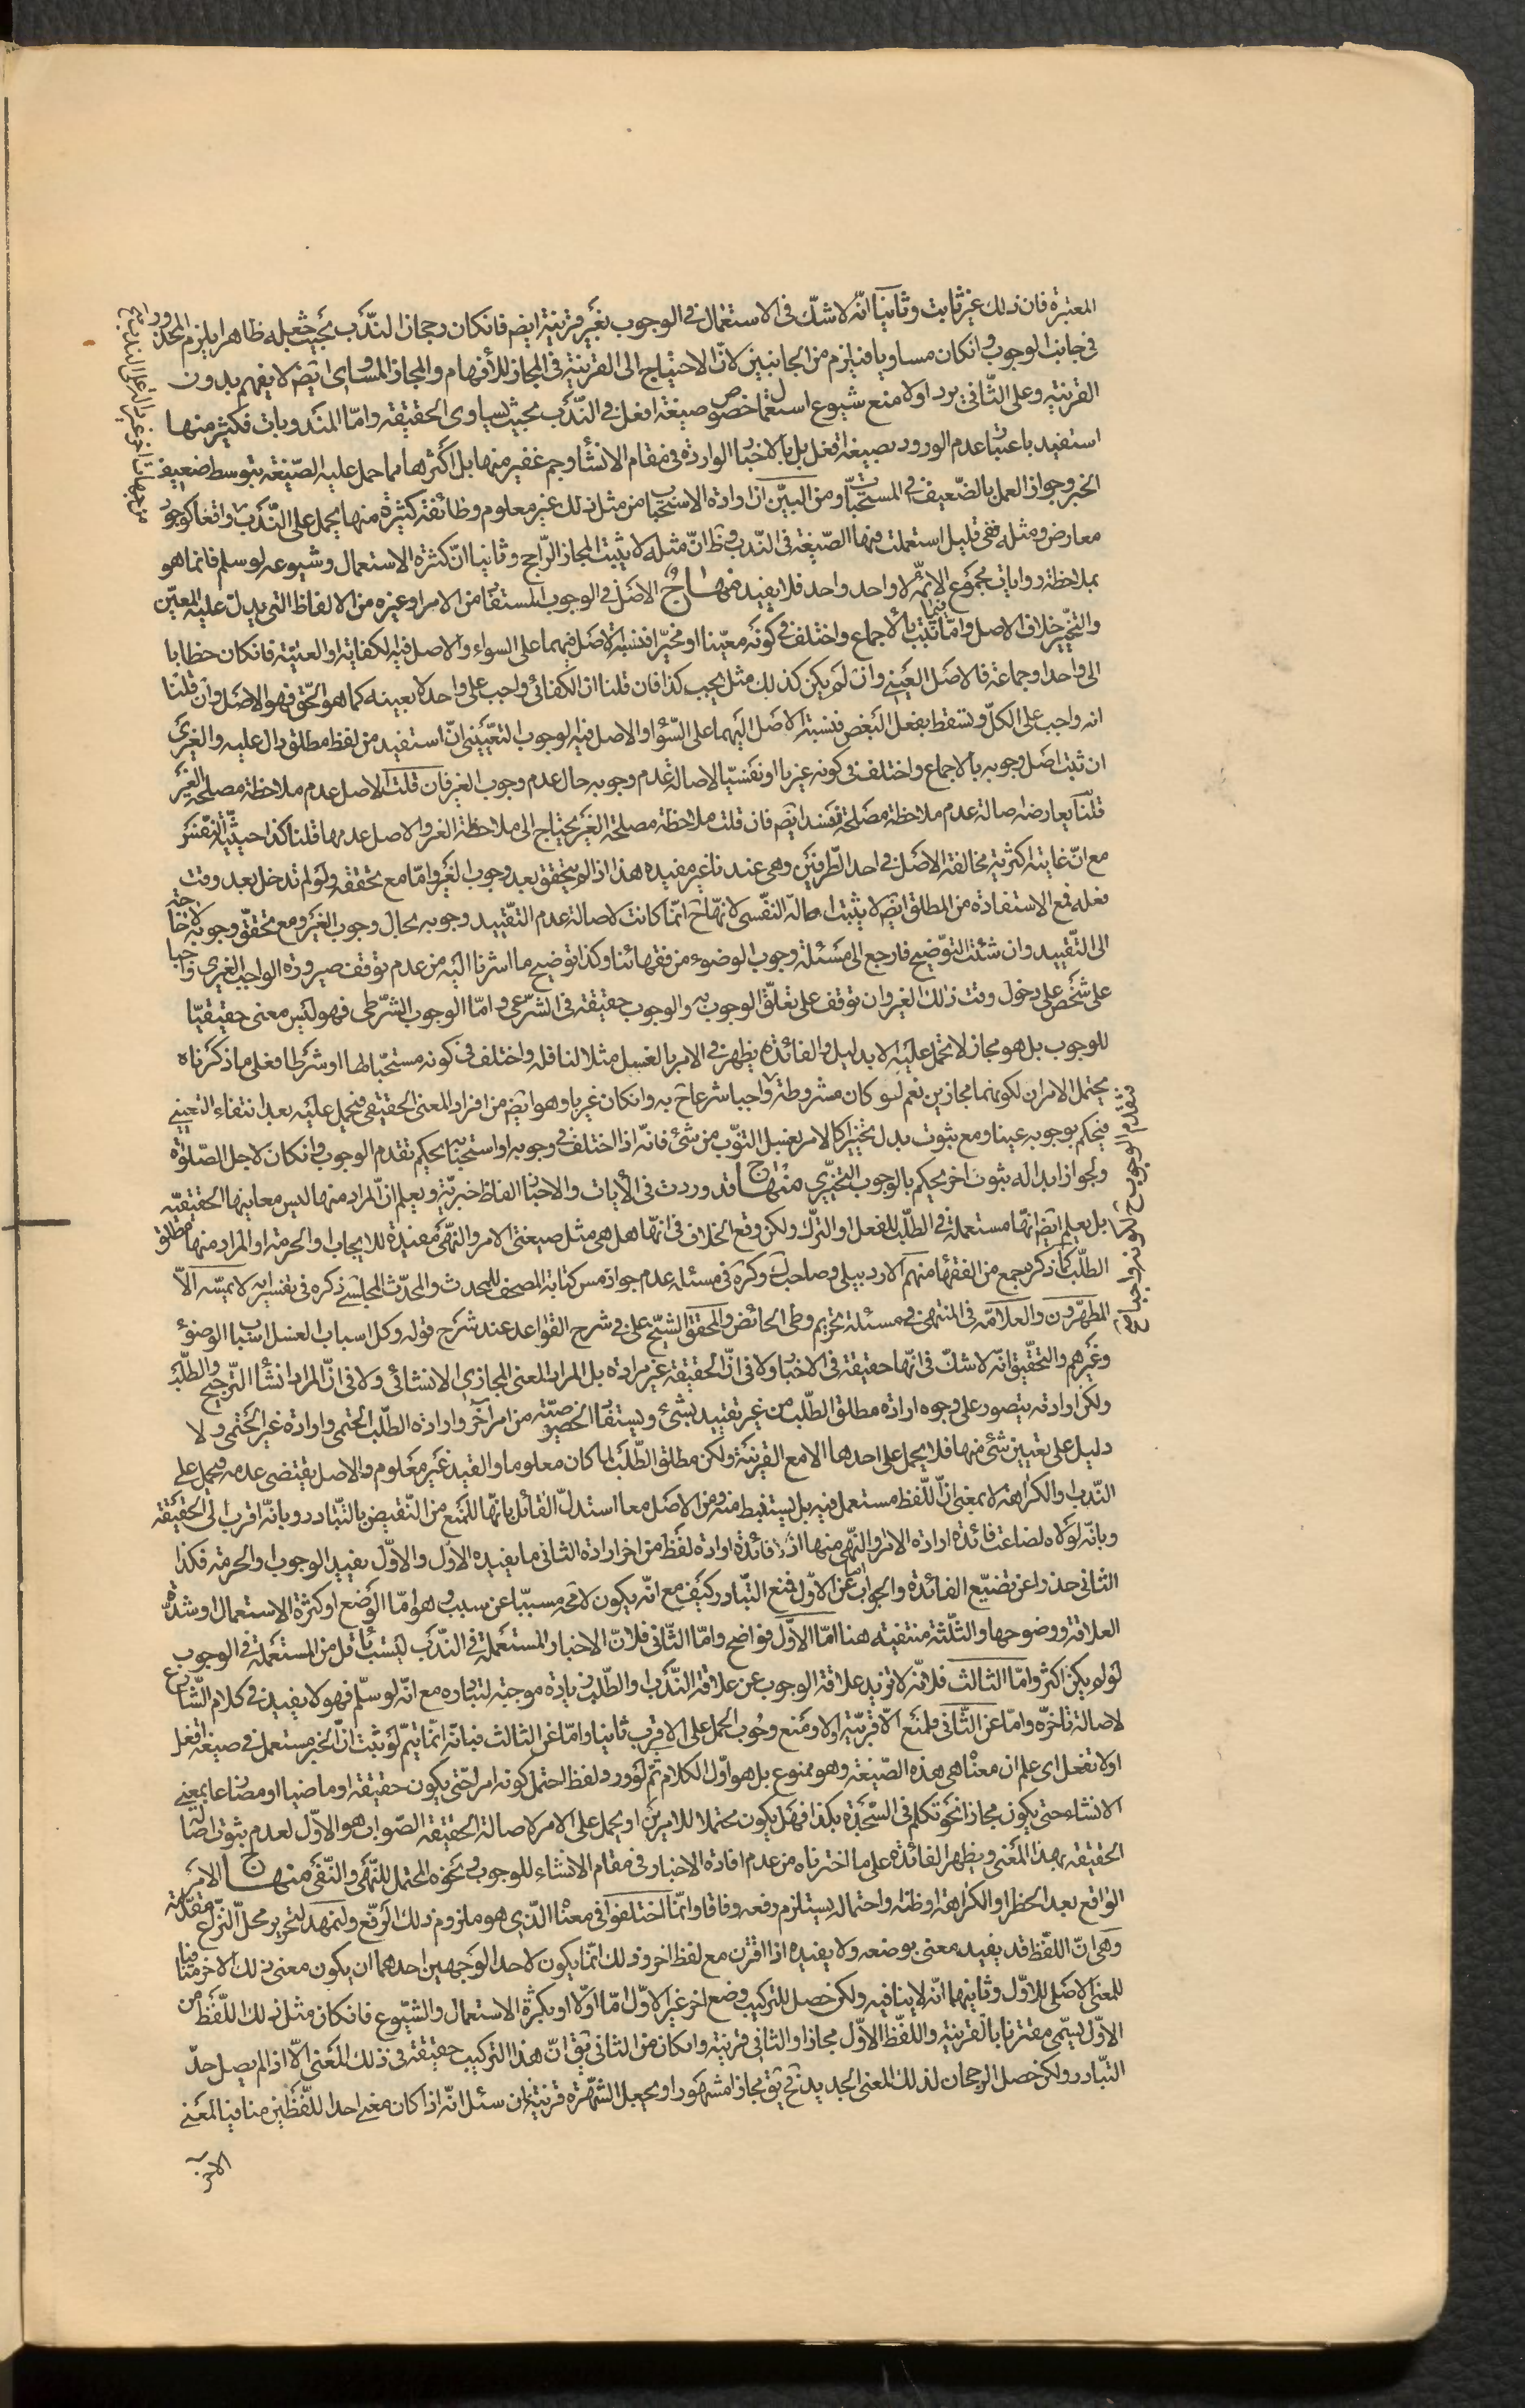 المعتبرة فان ذلك غير ثابت وثانيا انّه لا شكّ فى الاستعمال فى الوجوب بغير قرينة ايضم فانكان رجحان النّدب بحيث يجعله ظاهرا يلزم المحذور
فى جانب الوجوب وانكان مساويا فيلزم من الجانبين لانّ الاحتياج الى القرينة فى المجاز للأفهام والمجاز المساوى ايضم لا يفهم بدون
القرينة وعلى الثّانى يرد اولا منع شيوع استعمال خصوص صيغة افعل فى النّدب بحيث يساوى الحقيقة وامّا المندوبات فكثير منها
استفيد باعتبار عدم الورود بصيغة افعل بل بالاخبار الواردة فى مقام الانشاء وجم غفير منها بل اكثرها مما حمل عليه الصّيغة بتوسط ضعيف
الخبر وجواز العمل بالضّعيف فى المستحبّات ومن البيّن ان ارادة الاستحباب من مثل ذلك غير معلوم وطائفة كثيرة منها يحمل على النّدب واقعا كوجود
معارض ومثله ففى قليل استعملت فيها الصّيغة فى النّدب وظ انّ مثله لا يثبت المجاز الرّاجح وثانيا انّ كثرة الاستعمال وشيوعه لو سلم فانما هو
بملاحظة روايات مجموع الائمّة لا واحد واحد فلا يفيد منهاج الاصل فى الوجوب المستفاد من الامر او غيره من الالفاظ التى يدلّ عليه المعيّن
والتّخيير خلاف الاصل وامّا فيما ثبت بالأجماع واختلف فى كونه معيّنا او مخيّرا فنسبة الاصل فيهما على السواء والاصل فيه الكفاية او العينيّة فانكان خطابا
الى واحد او جماعة فالاصل العينى وان لم يكن كذلك مثل يجب كذا فان قلنا ان الكفائى واجب على واحد لا بعينه كما هو الحّق فهو الاصل وان قلنا
انه واجب على الكلّ ويسقط بفعل البعض فنسبة الاصل اليهما على السّواء والاصل فيه الوجوب التعيّينى انّ استفيد من لفظ مطلق دال عليه والغيرى
ان ثبت اصل وجوبه بالاجماع واختلف فى كونه غيريا او نفسيّا لاصالة عدم وجوبه حال عدم وجوب الغير فان قلت الاصل عدم ملاحظة مصلحة الغير
قلنا يعارضه اصالة عدم ملاحظة مصلحة نفسه ايضم فان قلت ملاحظة مصلحة الغير يحتاج الى ملاحظة الغير والاصل عدمها قلنا كذا حيثيّة النّفس
مع انّ غاية اكثرية مخالفة الاصل فى احد الطّرفين وهى عندنا غير مفيدة هذا اذا لم يتحقق بعد وجوب الغير وامّا مع تحققه ولو لم تدخل بعد وقت
فعله فمع الاستفادة من المطلق ايضم لا يثبت اصالة النّفسى لانّها ح انّما كانت لاصالة عدم التقّييد وجوبه بحال وجوب الغير ومع تحقّق وجوبه لا حاجة
الى التّقييد وان شئت التوّضيح فارجع الى مسئلة وجوب الوضوء من فقهائنا وكذا توضيح ما اشرنا اليه من عدم توقف صيرورة الواجب الغيرى واجبا
على شخص على دخول وقت ذلك الغير وان توقف على تعلّق الوجوب به والوجوب حقيقة فى الشّرعى وامّا الوجوب الشّرطى فهو ليس معنى حقيقيّا
للوجوب بل هو مجاز لا يحمل عليه الا بدليل والفائدة يظهر فى الامر بالغسل مثلا للنافلة واختلف فى كونه مستحبّا لها او شرطا فعلى ما ذكرناه
يحتمل الامران لكونهما مجازين نعم لو كان مشروطة واجبا شرعا ح به وانكان غيريا وهو ايضم من افراد المعنى الحقيقى فيحمل عليه بعد انتفاء التعينى
فيحكم بوجوبه عينا ومع ثبوت بدل يخيّر كالامر بغسل الثوّب من شئ فانّه اذا اختلف فى وجوبه او استحبابه يحكم بتقدم الوجوب وانكان لاجل الصّلوة
ولجواز ابداله بثوب اخر يحكم بالوجوب التّخيرّى منهاج قد وردت فى الأيات والاخبار الفاظ خبريّة ويعلم انّ المراد منها ليس معاينها الحقيقيّه
بل يعلم ايضم انّها مستعملة فى الطّلب للفعل او التّرك ولكن وقع الخلاف فى انّها هل هى مثل صيغتى الامر والنّهى مفيدة للايجاب والحرمة او المراد منها مطلق
الطّلب كما ذكره جمع من الفقهاء منهم الاردبيلى وصاحب ك وكره فى مسئلة عدم جواز مس كتابة المصحف للمحدث والمحدّث المجلسى ذكره فى تفسير اية لا يمسّه الاّ
المطهّرون والعلاّمة فى المنتهى فى مسئلة تحريم وطى الحائض والمحقق الشيّخ على فى شرح القواعد عند شرح قوله وكل اسباب الغسل اسباب الوضوء
وغيرهم والتحقّيق انّه لا شكّ فى انّها حقيقة فى الاخبار ولا فى انّ الحقيقة غير مرادة بل المراد المعنى المجازى الانشائى ولا فى انّ المراد انشاء التّرجيح والطّلب
ولكن ارادته يتصور على وجوه ارادة مطلق الطّلب من غير تقييد بشئ ويستفاد الخصوصيّة من امر آخر وارادة الطّلب الحتمى وارادة غير الحتمى ولا
دليل على تعيين شئ منها فلا يحمل على احدها الا مع القرينة ولكن مطلق الطّلب لما كان معلوما والقيد غير معلوم والاصل يقتضى عدمه فيحمل على
النّدب والكراهة لا بمعنى انّ اللّفظ مستعمل فيه بل يستنبط منه ومن الاصل معا استدلّ القائل بانّها للمنع من النّقيض بالتّبادر وبانّه اقرب الى الحقيقة
وبانّه لولاه لضاعت فائدة ارادة الامر والنّهى منها اذ فائدة ارادة لفظ من اخر ارادة الثانى ما يفيده الاوّل والاوّل يفيد الوجوب والحرمة فكذا
الثانى حذرا عن تضيّع الفائدة والجواب امّا عن الاوّل فمنع التّبادر كيف مع انّه يكون لا محه مسببّا عن سبب وهو امّا الوضع او كثرة الاستعمال وشدّة
العلاقة ووضوحها والثلثة منتفية هنا امّا الاوّل فواضح وامّا الثّانى فلانّ الاخبار المستعملة فى النّدب ليست باقل من المستعملة فى الوجوب
لو لم يكن اكثر وامّا الثالث فلانّه لا تزيد علاقة الوجوب عن علاقة النّدب او الطّلب زيادة موجبة لتبادره مع انّه لو سلّم فهو لا يفيد فى كلام الشّارع
لاصالة تاخرّه وامّا عن الثّانى فلمنع الاقربيّة اولا ومنع وجوب الحمل على الاقرب ثانيا وامّا عن الثالث فبانّه انّما يتمّ لو ثبت انّ الخبر مستعمل فى صيغة افعل
او لا تفعل اى علم ان معناه هى هذه الصّيغة وهو ممنوع بل هو اوّل الكلام ثم لو ورد لفظ احتمل كونه امرا حتّى يكون حقيقة او ماضيا او مضارعا بمعنى
الانشاء حتى يكون مجازا نحو تكلم فى السّجدة بكذا فهل يكون محتملا للامرين او يحمل على الامر لاصالة الحقيقة الصّواب هو الأوّل لعدم ثبوت اصالة
الحقيقة بهذا المعنى ويظهر الفائدة على ما اخترناه من عدم افادة الاخبار فى مقام الانشاء للوجوب وفى نحوه المحتمل للنّهى والنّفى منهاج الامر
الواقع بعد الحظر او الكراهة او ظنّه واحتماله يستلزم رفعه وفاقا وانّما اختلفوا فى معناه الذى هو ملزوم ذلك الرّفع ولنمهد لتحرير محلّ النّزاع مقدّمة
وهى انّ اللّفظ قد يفيد معنى بوضعه ولا يفيده اذا اقترن مع لفظ اخر وذلك انّما يكون لاحد الوجهين احدهما ان يكون معنى ذلك الاخر منافيا
للمعنى الاصلى للاوّل وثانيهما انّه لا ينافيه ولكن حصل للتركيب وضع اخر غير الاوّل امّا اوّلا او بكثرة الاستعمال والشّيوع فانكان مثل ذلك اللّفظ من
الاوّل يسمّى مقترنا بالقرينة واللّفظ الاوّل مجازا والثانى قرينة وانكان من الثانى يق انّ هذا التركيب حقيقة فى ذلك المعنى الاّ اذا لم يصل حدّ
التّبادر ولكن حصل الرجحان لذلك المعنى الجديد فح يق مجازا مشهورا ويجعل الشّهرة قرينة فان سئل انّه اذا كان معنى احد اللّفظين منافيا لمعنى
الاخر